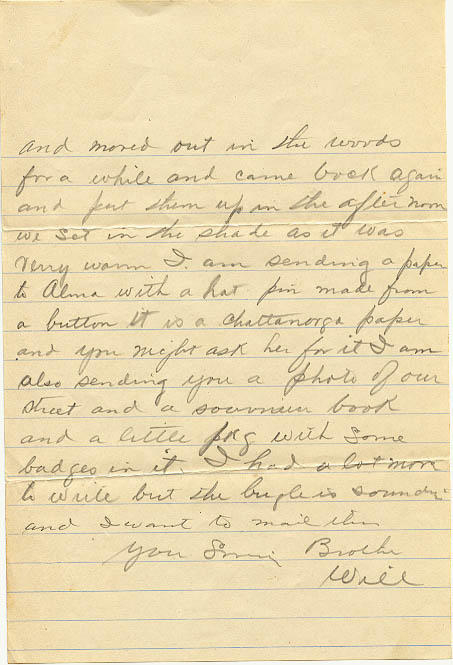 and moved out in the woods
for a while and came back again
and put them up in the after noon
we set in the shade as it was
verry warm I. am sending a paper
to Alma with a hat pin made from
a button It is a Chattanorga paper
and you might ask her for it I am
also sending you a photo of our
street and a souvneir book
and a little pkg with some
badges in it. I had a lot more
to write but the bugle is soundi
and I want to mail this
Your Brothe
Will